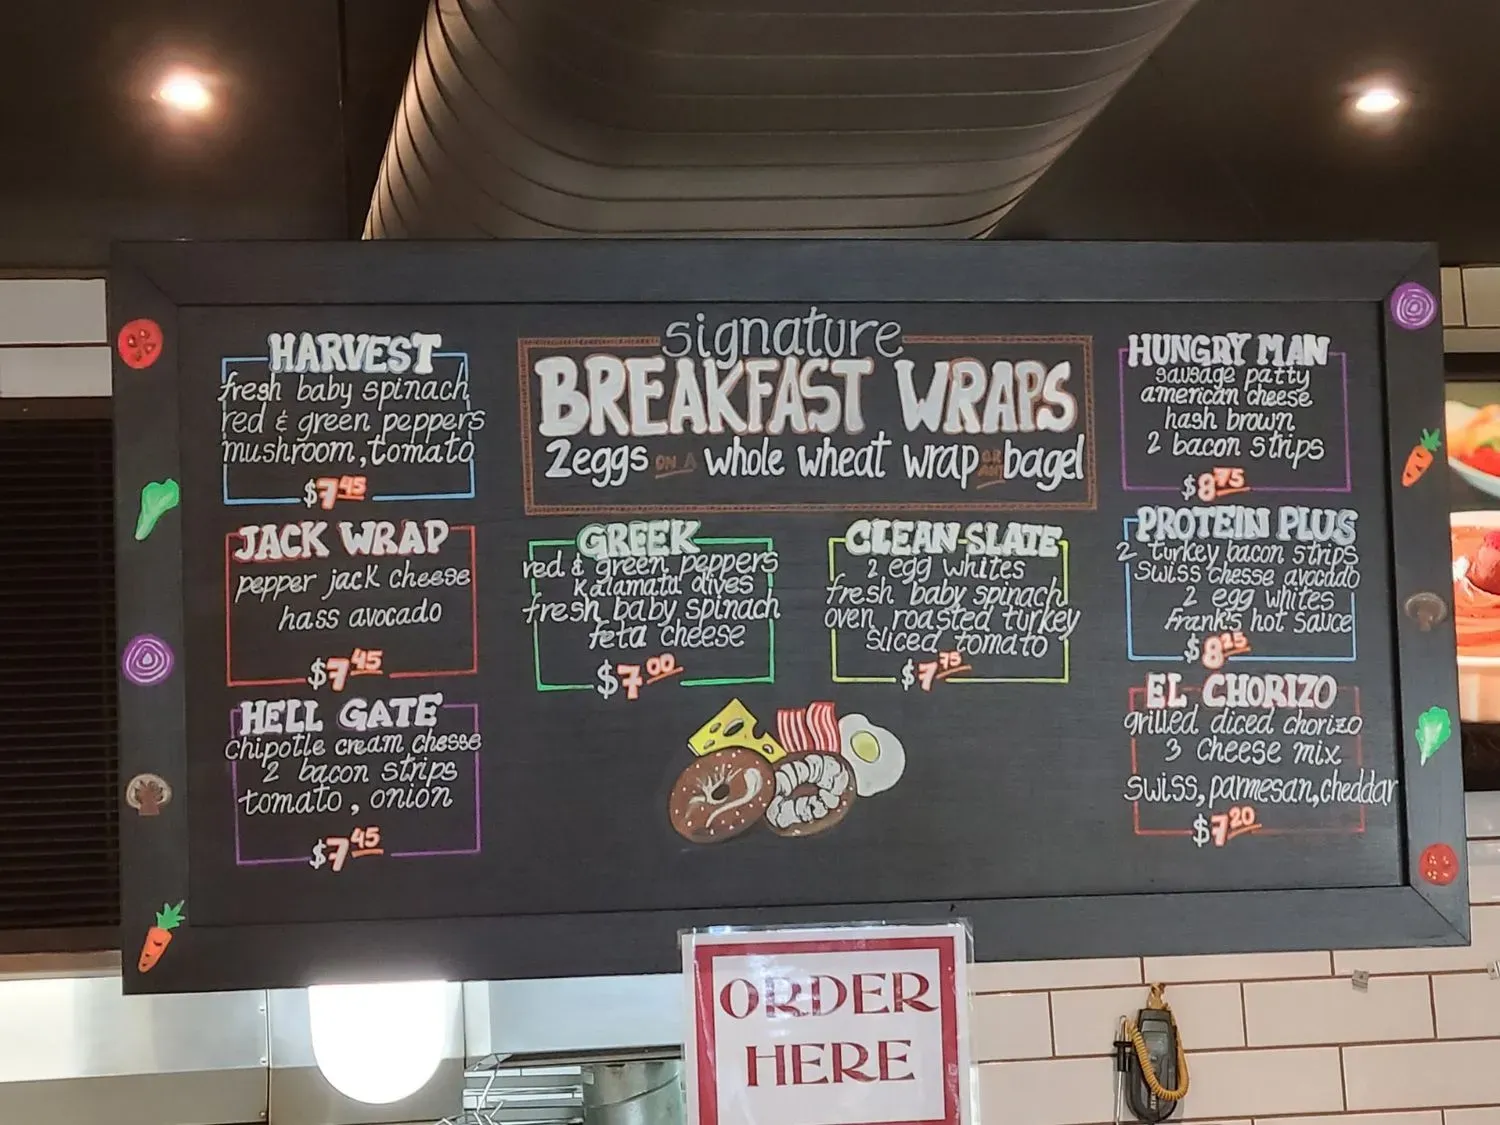 signature
BREAKFAST WRAPS
2eggs ON A whole wheat wrap OR ANY bagel
HARVEST
fresh baby spinach
red & green peppers
mushroom, tomato
$7.45
JACK WRAP
pepper jack cheese
hass avocado
$7.45
HELL GATE
chipotle cream chesse
2 bacon strips
tomato, onion
$7.45
GREEK
red & green peppers
kalamata olives
fresh baby spinach
feta cheese
$7.00
CLEAN SLATE
2 egg whites
fresh baby spinach
oven roasted turkey
sliced tomato
$7.75
HUNGRY MAN
sausage patty
american cheese
hash brown
2 bacon strips
$8.75
PROTEIN PLUS
2 turkey bacon strips
swiss chesse avocado
2 egg whites
frank's hot sauce
$8.25
EL CHORIZO
grilled diced chorizo
3 cheese mix
swiss, parmesan, cheddar
$7.20
ORDER
HERE